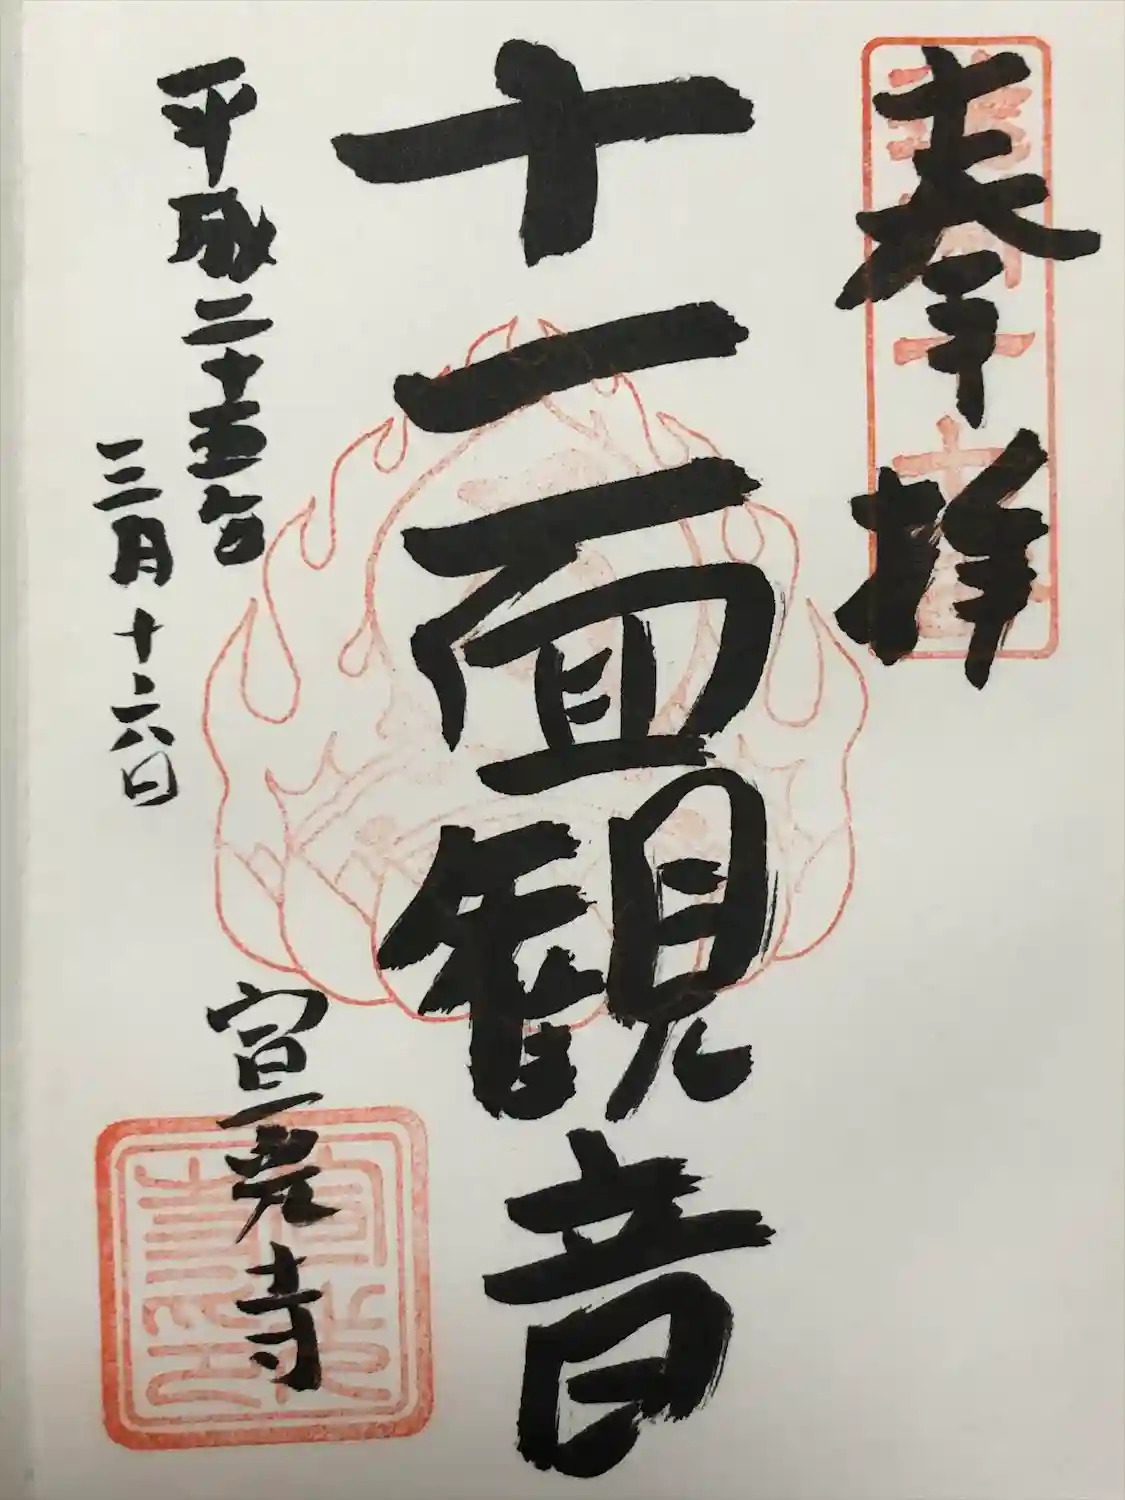 奉拝
十一面観音
平成二十五年
三月十六日
宣光寺